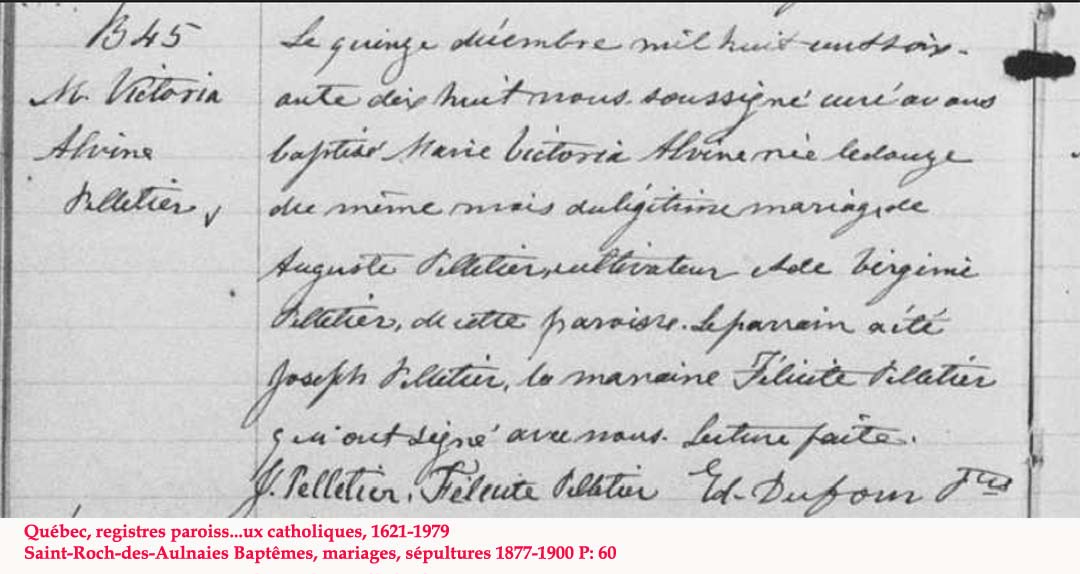 B 45
M. Victoria
Alvine
Pelletier
Le quinze décembre mil huit cent soix-
ante dix huit nous soussigné curé avons
baptisé Marie Victoria Alvine née le douze
du même mois du légitime mariage de
Auguste Pelletier, cultivateur et de Virginie
Pelletier, de cette paroisse. Le parrain a été
Joseph Pelletier, la marraine Félicité Pelletier
qui ont signé avec nous. Lecture faite.
J. Pelletier. Félicité Pelletier Ed. Dufour
Québec, registres paroiss...ux catholiques, 1621-1979
Saint-Roch-des-Aulnaies Baptêmes, mariages, sépultures 1877-1900 P: 60